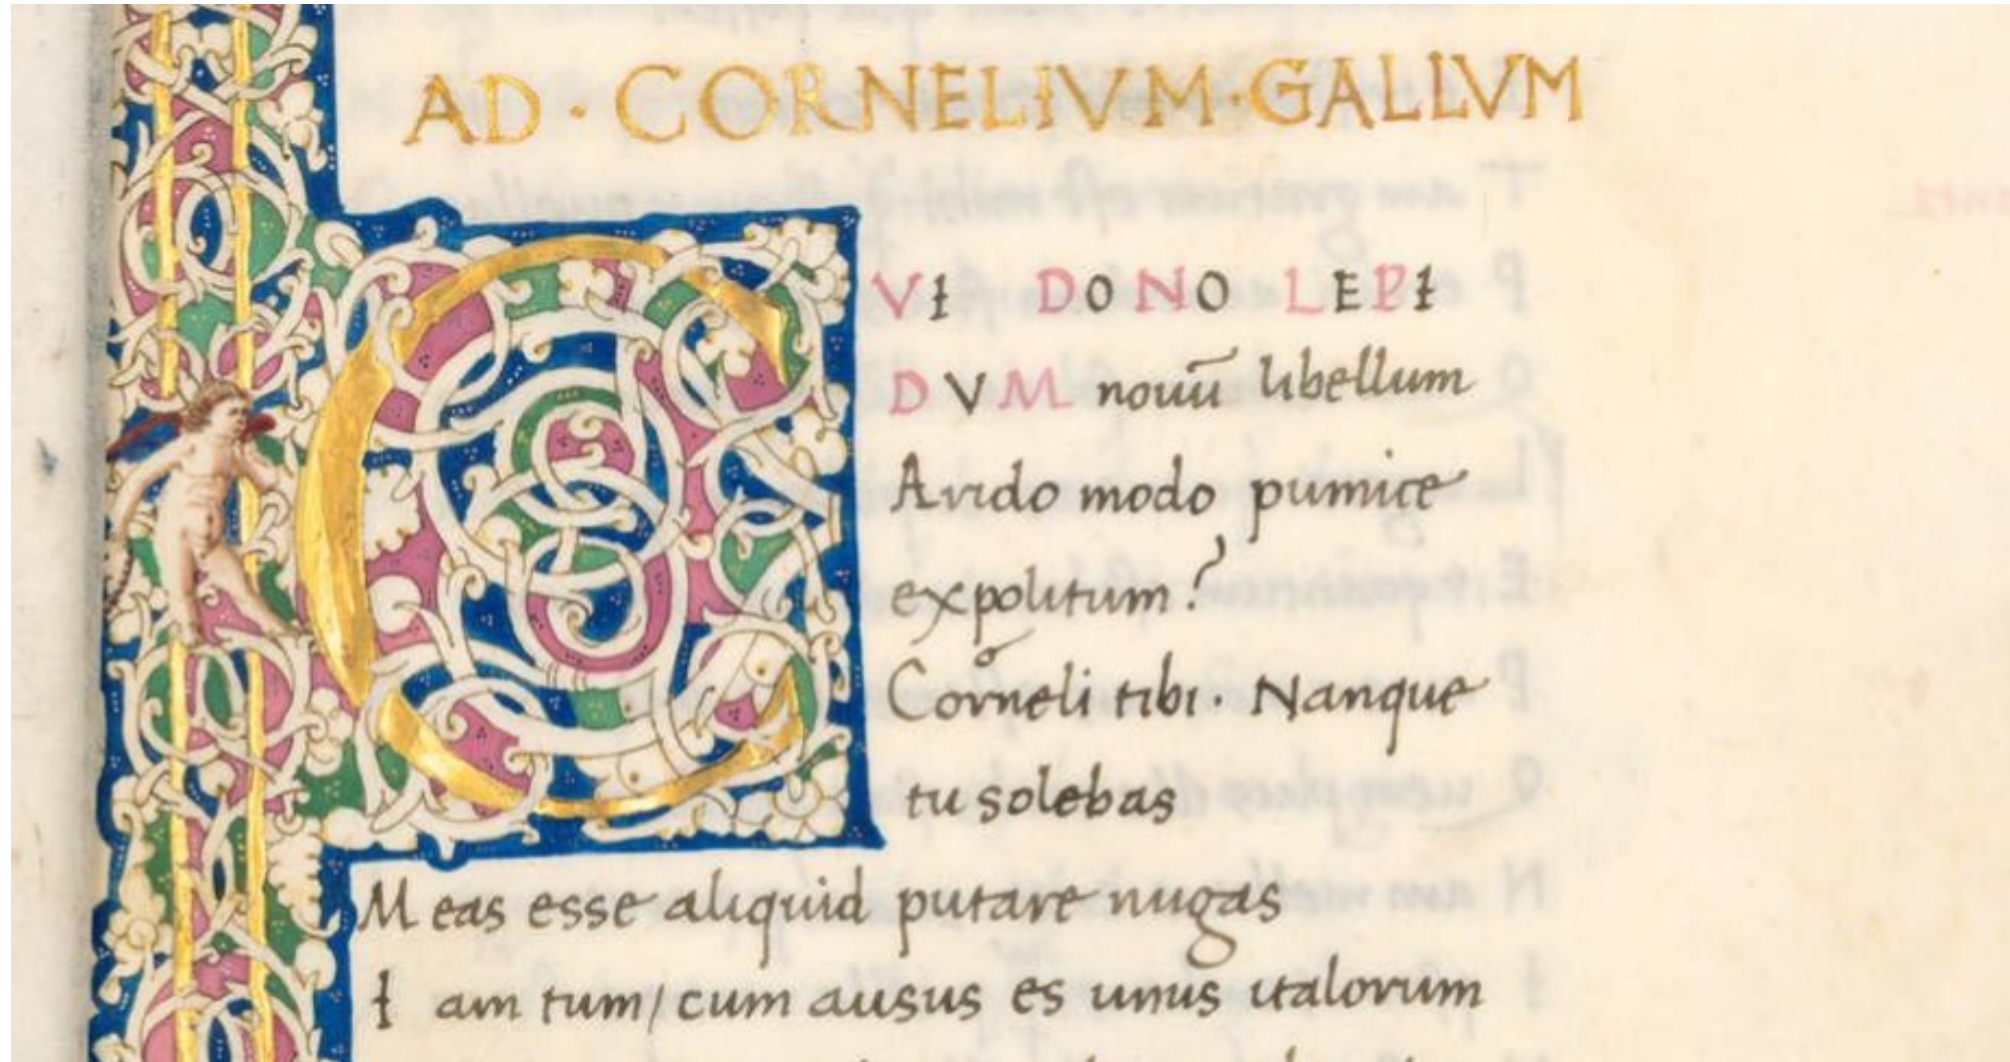 AD · CORNELIVM · GALLVM
CVI DONO LEPI
DVM nouū libellum
Arido modo pumice
expolitum?
Corneli tibi. Nanque
tu solebas
Meas esse aliquid putare nugas
Iam tum/cum ausus es unus italorum